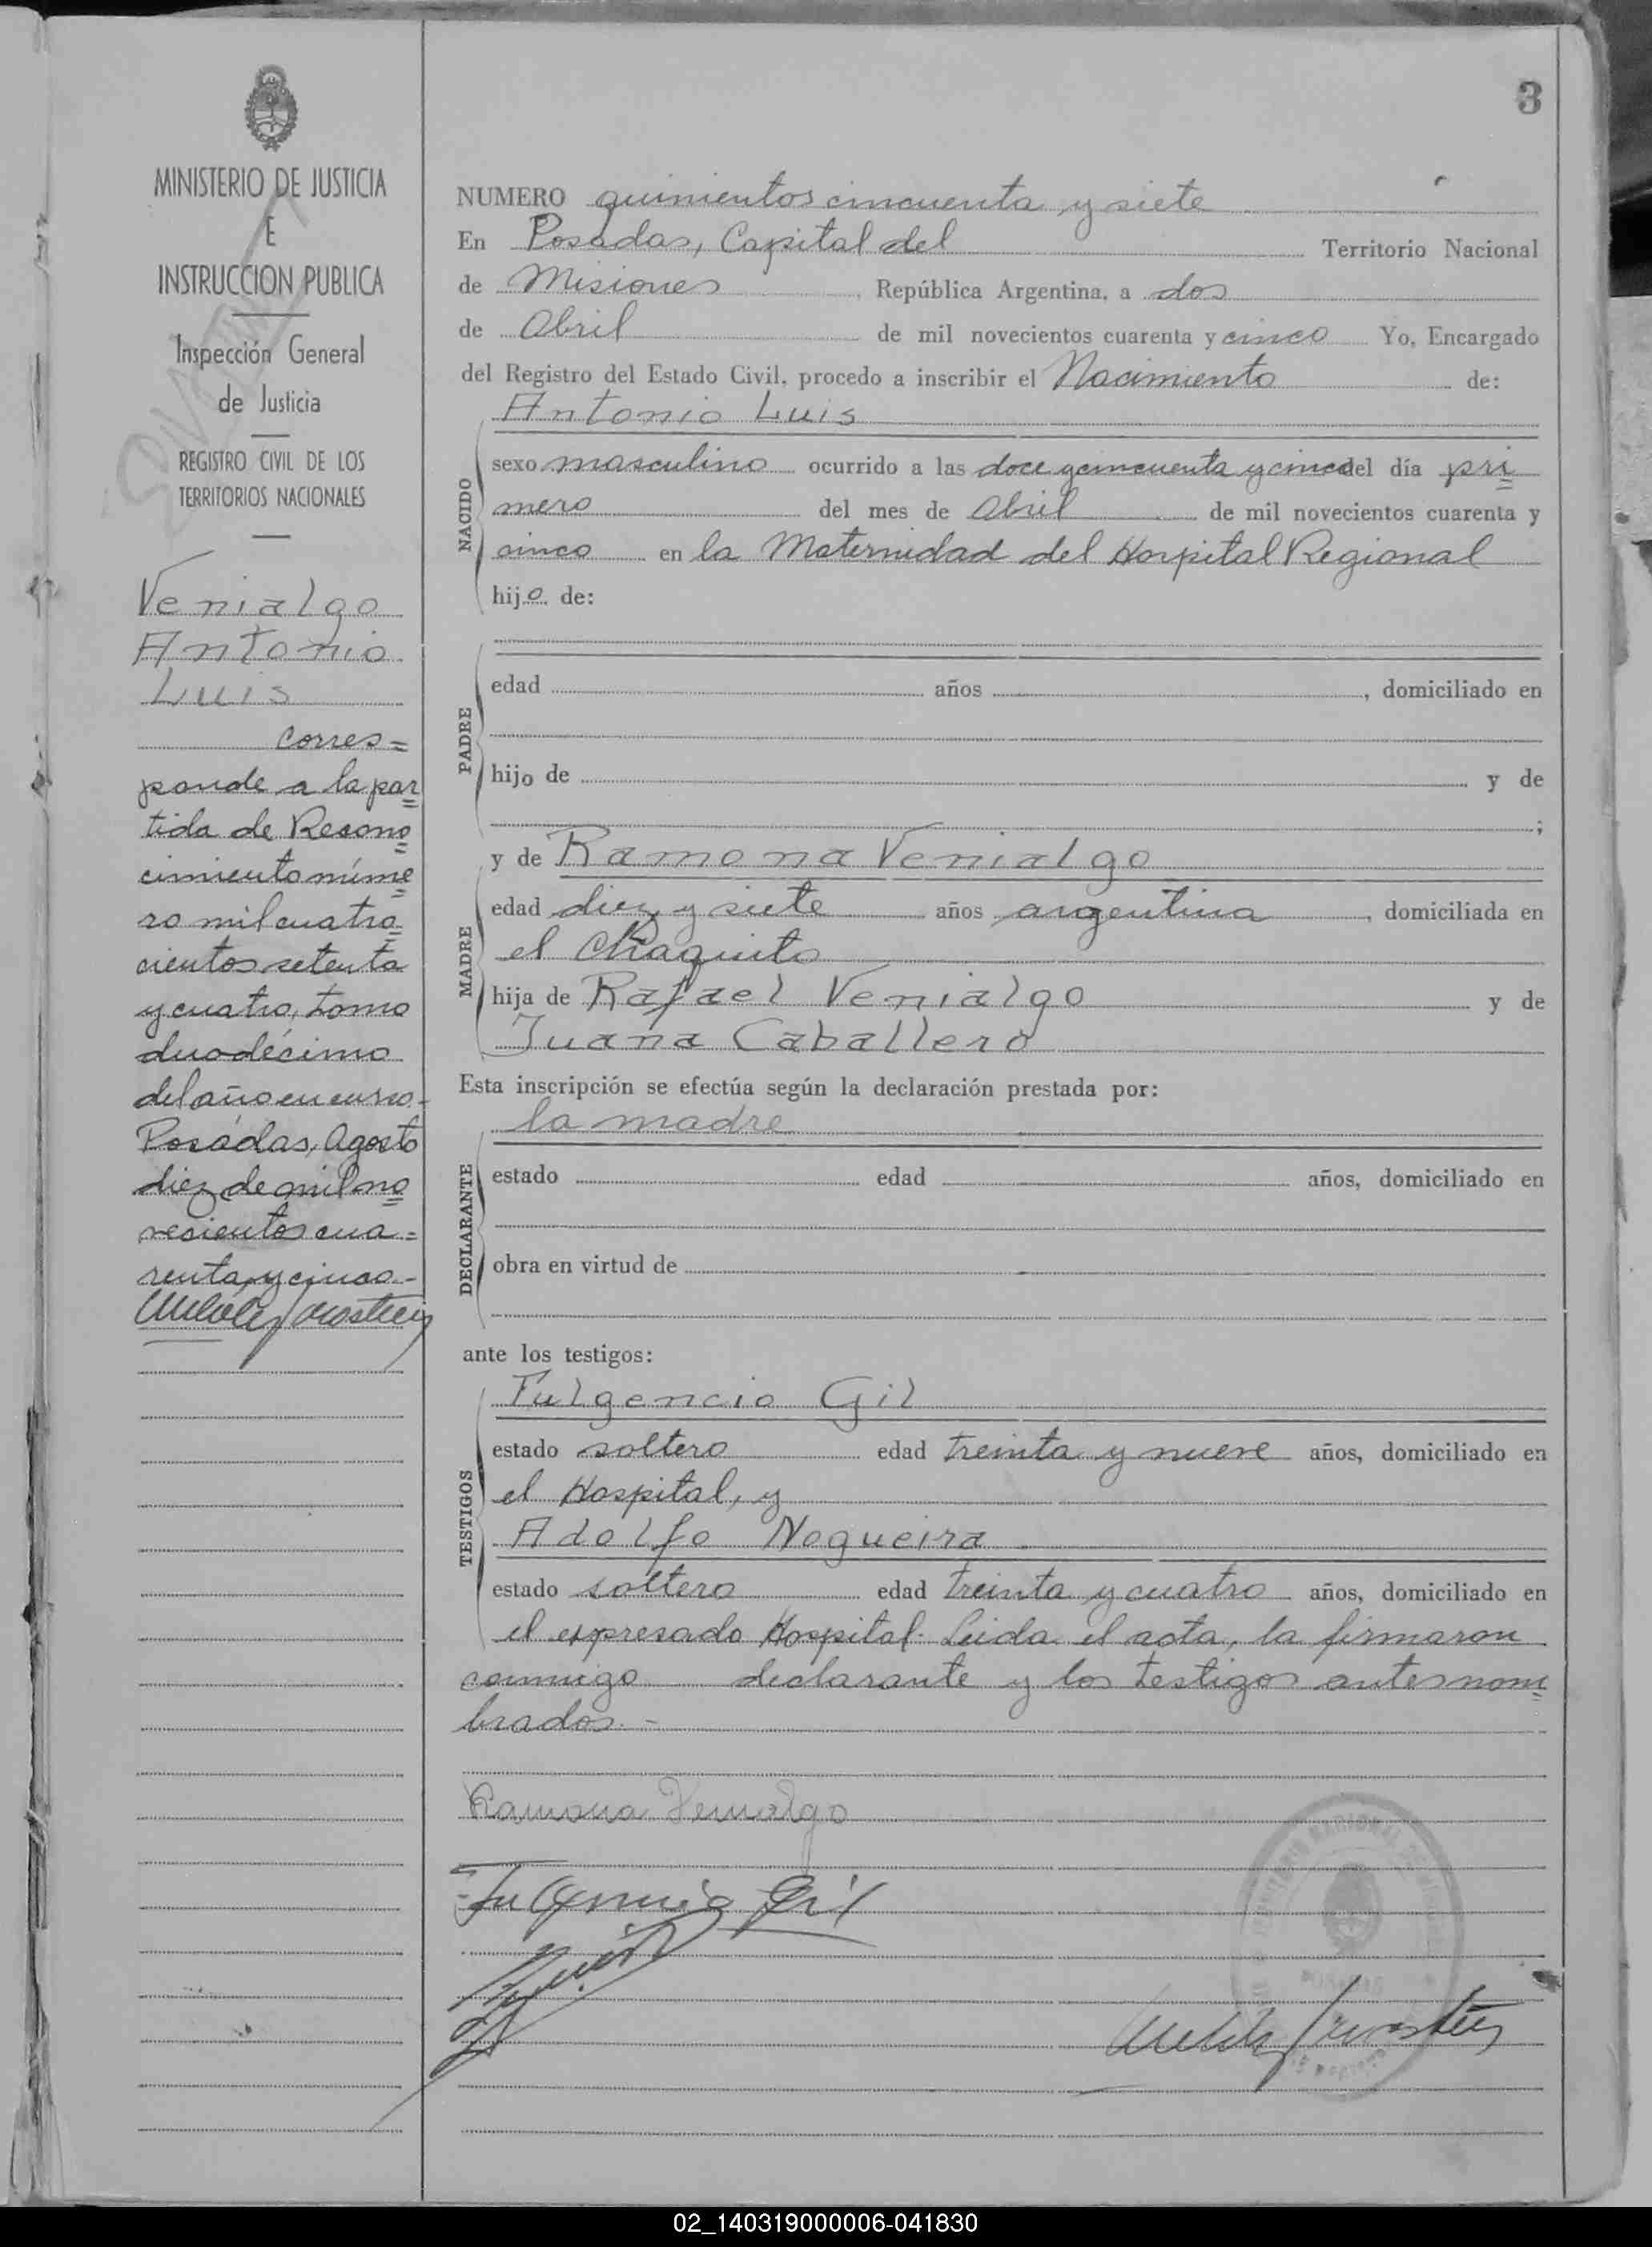 3
MINISTERIO DE JUSTICIA
E
INSTRUCCION PUBLICA
Inspección General
de Justicia
REGISTRO CIVIL DE LOS
TERRITORIOS NACIONALES
Venialgo
Antonio
Luis
corres=
ponde a la par
tida de Recono
cimiento núme
ro mil cuatro
cientos setenta
y cuatro, tomo
duodécimo
del año en curso.-
Posadas, Agosto
diez de mil no
vecientos cua=
renta y cinco.-
NUMERO quinientos cincuenta y siete
En Posadas, Capital del Territorio Nacional
de Misiones, República Argentina, a dos
de Abril de mil novecientos cuarenta y cinco Yo, Encargado
del Registro del Estado Civil, procedo a inscribir el Nacimiento de:
Antonio Luis
NACIDO
sexo masculino ocurrido a las doce y cincuenta y cinco del día pri
mero del mes de Abril de mil novecientos cuarenta y
cinco en la Maternidad del Hospital Regional
hijo de:
PADRE
edad años , domiciliado en
hijo de y de
;
MADRE
y de Ramona Venialgo
edad diez y siete años argentina, domiciliada en
el Chaquito
hija de Rafael Venialgo y de
Juana Caballero
Esta inscripción se efectúa según la declaración prestada por:
la madre
DECLARANTE
estado edad años, domiciliado en
obra en virtud de
ante los testigos:
TESTIGOS
Fulgencio Gil
estado soltero edad treinta y nueve años, domiciliado en
el Hospital, y
Adolfo Nogueira
estado soltero edad treinta y cuatro años, domiciliado en
el expresado Hospital. Leida el acta, la firmaron
conmigo declarante y los testigos antes nom
brados.-
Ramona Venialgo
Fulgencio Gil
02_140319000006-041830